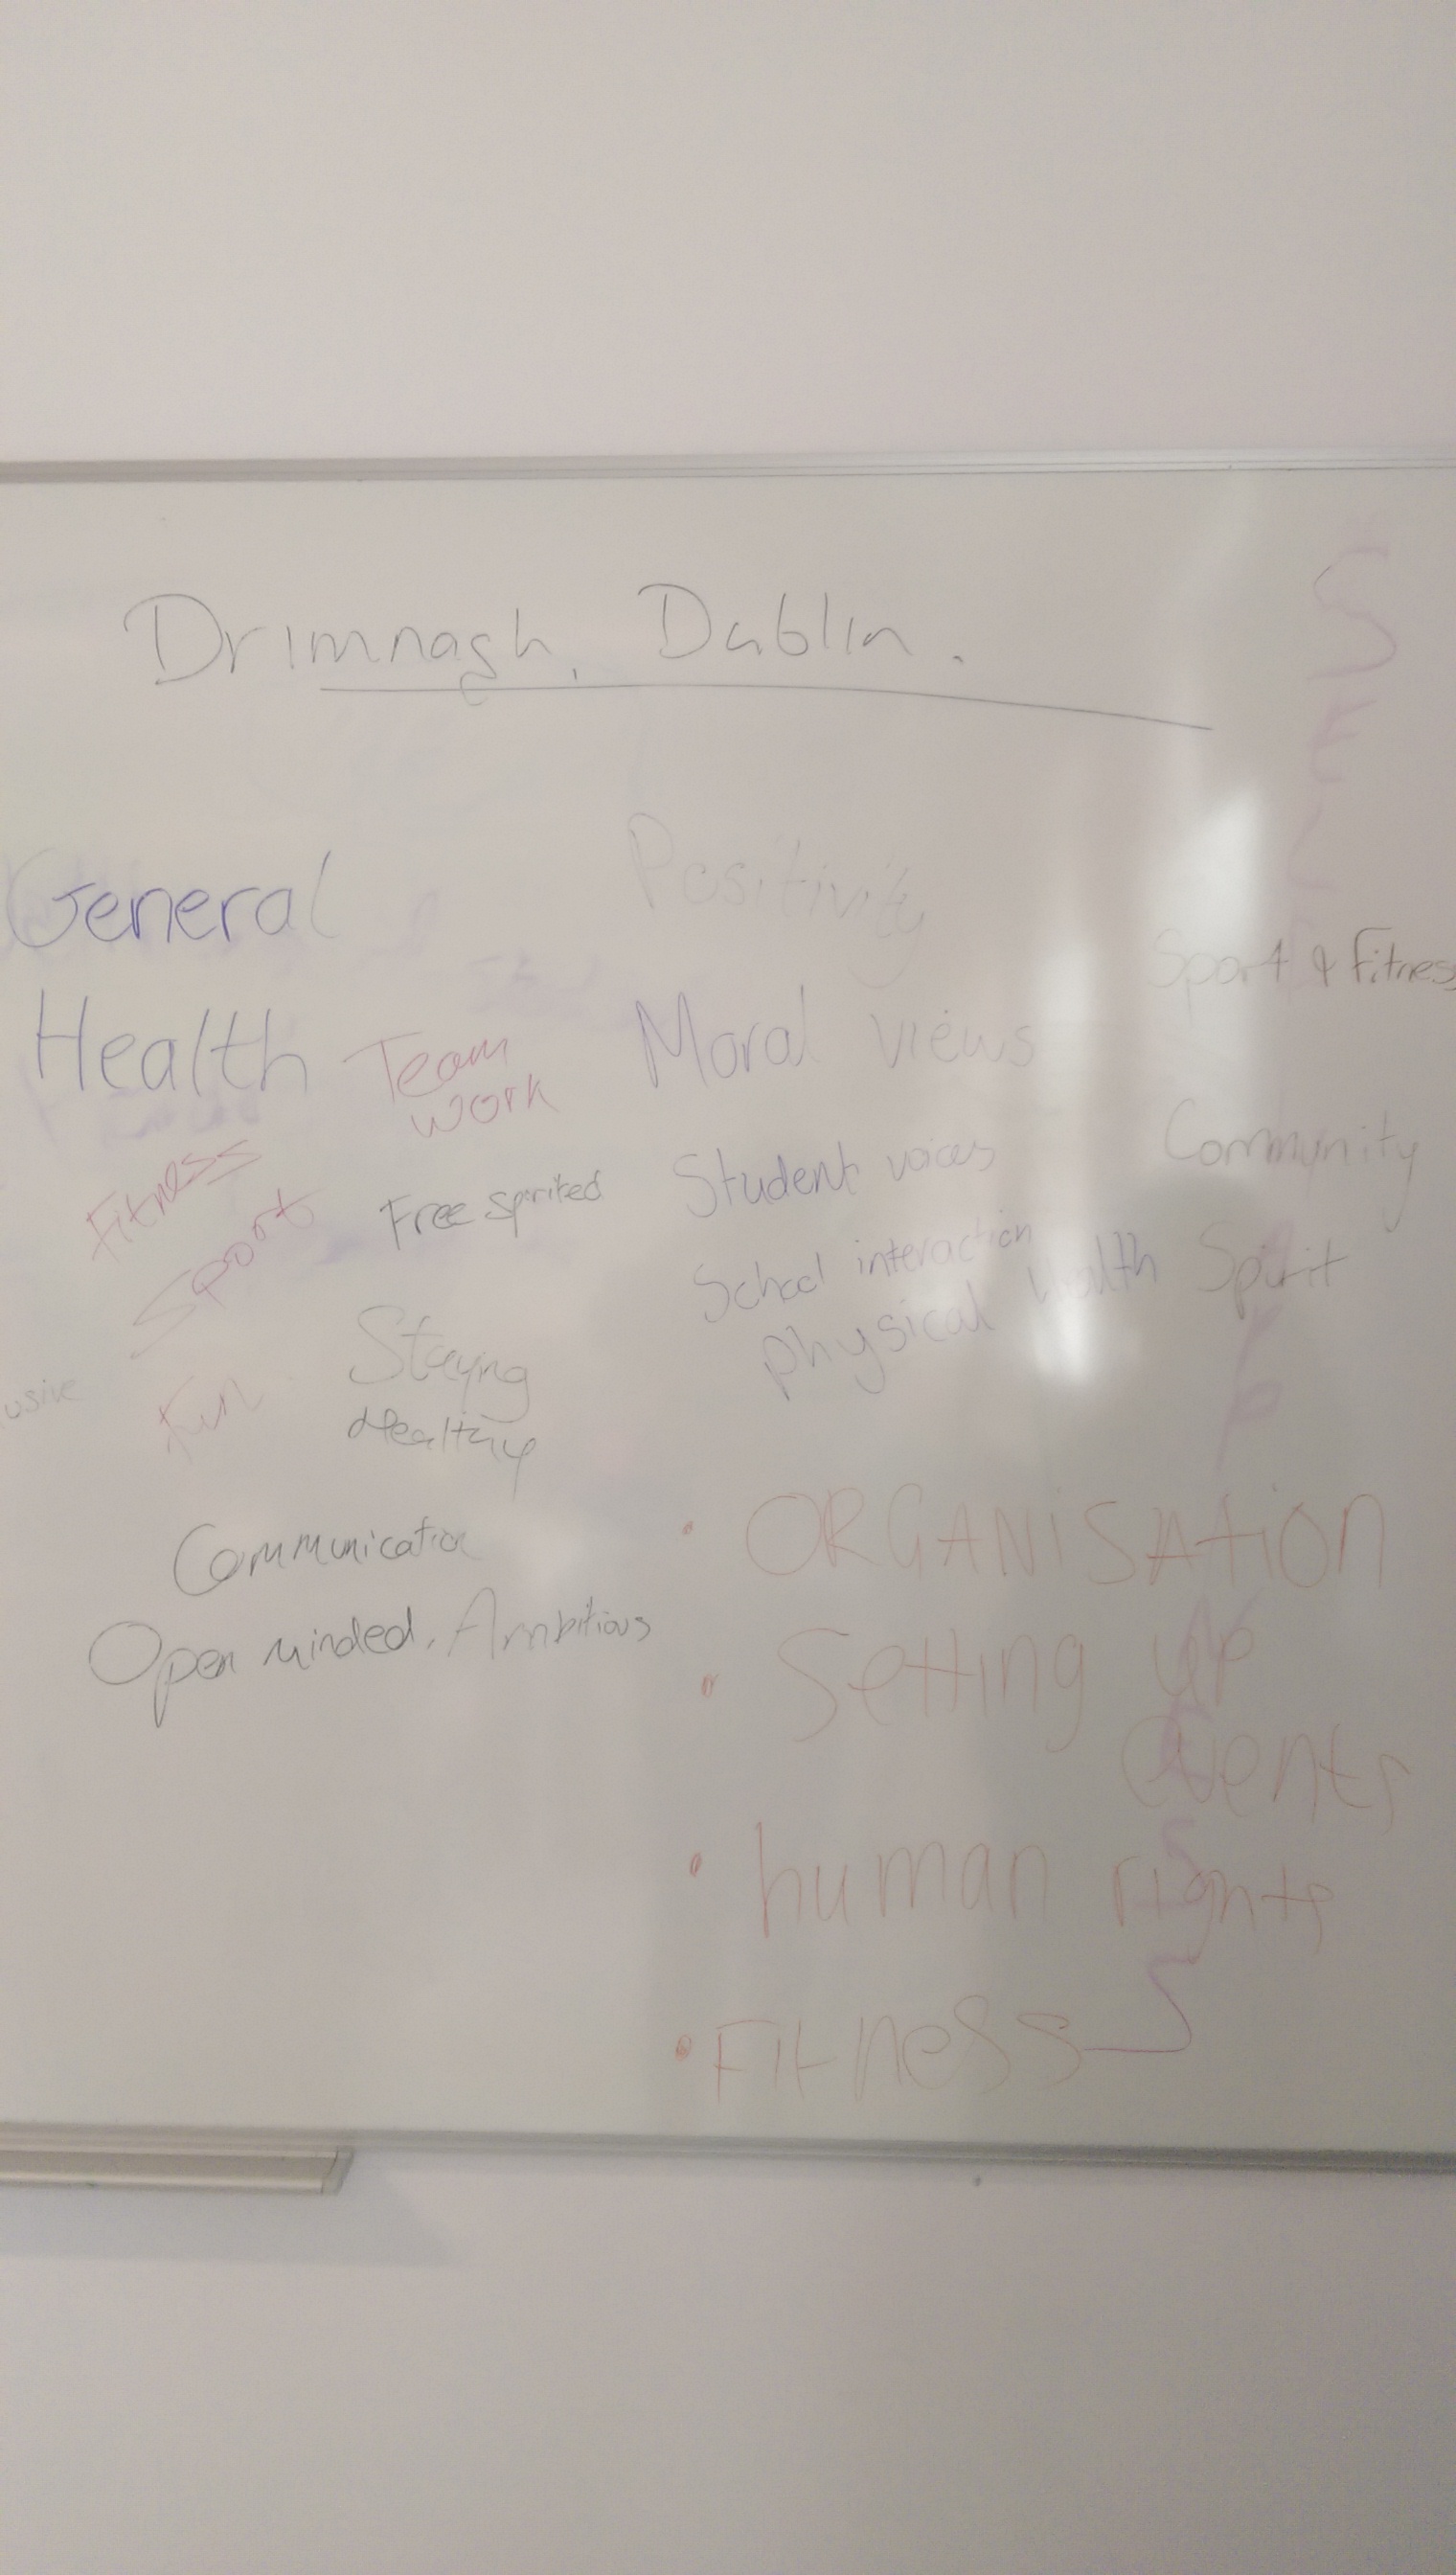 Drimnagh, Dublin.
General
Health
Team
work
Fitness
Sport
Fun
Free spirited
Staying
Healthy
usive
Communication
Open minded, Ambitious
Positivity
Moral views
Student voices
School interaction
physical health
Sport & Fitness
Community
Spirit
• ORGANISAtiON
• Setting up
events
• human rights
• Fitness
S
E
L
F